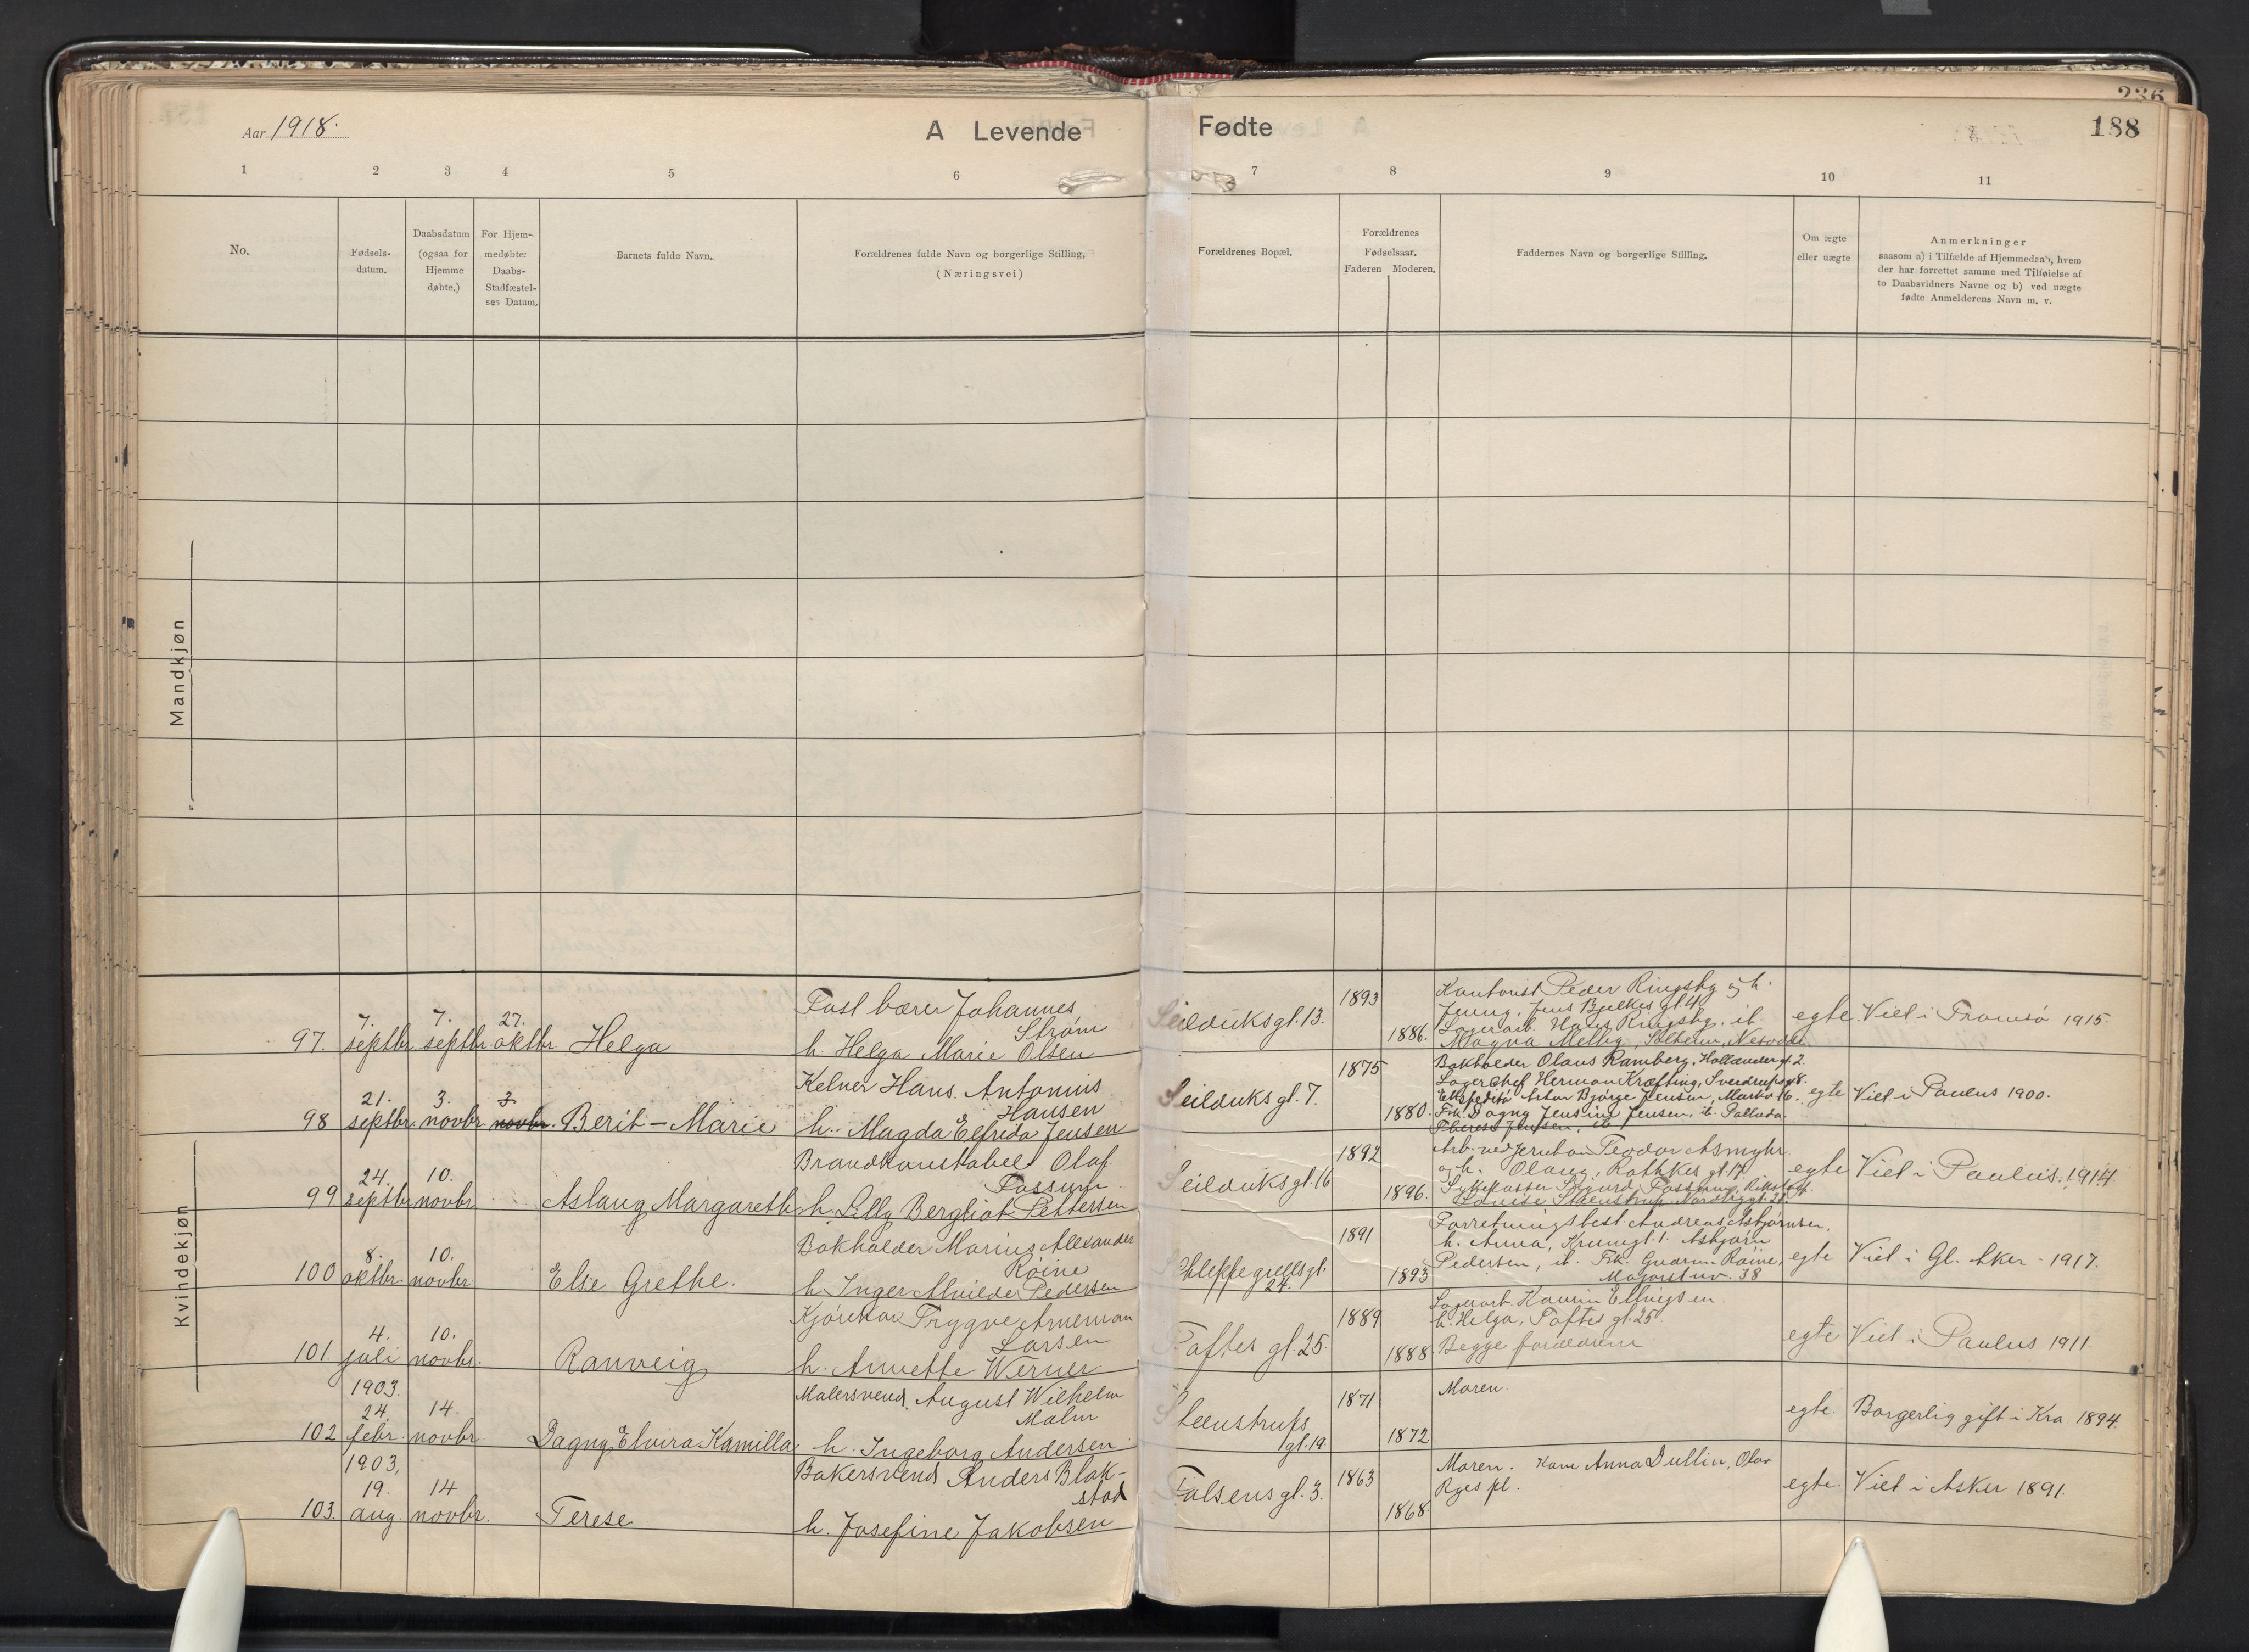 236
Aar 1918.
A Levende Fødte
188
1 2 3 4 5 6 7 8 9 10 11
No.
Fødsels-
datum.
Daabsdatum
(ogsaa for
Hjemme
døbte.)
For Hjem-
medøbte:
Daabs-
Stadfæstel-
ses Datum.
Barnets fulde Navn.
Forældrenes fulde Navn og borgerlige Stilling,
(Næringsvei)
Forældrenes Bopæl.
Forældrenes
Fødselsaar.
Faderen Moderen.
Faddernes Navn og borgerlige Stilling.
Om ægte
eller uægte
Anmerkninger
saasom a) i Tilfælde af Hjemmedaab, hvem
der har forrettet samme med Tilføielse af
to Daabsvidners Navne og b) ved uægte
fødte Anmelderens Navn m. v.
Mandkjøn
Kvindekjøn
97.
7.
septbr.
7.
septbr.
27.
oktbr.
Helga
Johannes
Strøm
h. Helga Marie Olsen
Seilduksgt. 13.
1893
1886.
Kontorist Peder Ringsby og h.
Jenny, Jens Bjelkes gt. 4
Lagerarb. Hans Ringsby, ib.
Magna Melby, Solheim, Nesodden
egte.
Viet i Tromsø 1915.
98
21.
septbr.
3.
novbr.
3.
novbr.
Berit-Marie
Kelner Hans Antonius
Hansen
h. Magda Elfrida Jensen
Seilduksgt. 7.
1875
1880.
Bokholder Olaus Ramberg, Hollændergt. 2.
Lagerchef Herman Kræfting, Sverdrupsgt. 8.
Bjørge Jensen,
Frk. Dagny Jensine Jensen, ib.
Therese Jensen, ib
egte
Viet i Paulus 1900.
99
24.
septbr.
10.
novbr.
Aslaug Margareth
Brandkonstabel Olaf
Fossum
h. Lilly Bergliot Pettersen
Seilduksgt. 16
1892
1896.
Arb. ved Jernban. Teodor Asmyhr
og h. Olaug, Rathkes gt. 17.
Sigurd Fossum,
Louise Steenstrup,
egte
Viet i Paulus. 1914.
100
8.
oktbr.
10.
novbr.
Else Grethe.
Bokholder Marius Alexander
Roine
h. Inger Alvilde Pedersen
Schleppegrellsgt.
24.
1891
1893
Forretningsbest. Andreas Asbjørnsen,
h. Anna, Krumgt. 1. Asbjørn
Pedersen, ib. Frk. Gudrun Roine,
Majorstuv. 38
egte
Viet i Gl. Aker - 1917.
101
4.
juli
10.
novbr.
Ranveig
Kjørekar Trygve Arneman
Larsen
h. Annette Werner
Toftes gt. 25.
1889
1888.
Lagerarb. Ellingsen
h. Helga, Toftes gt. 25.
Begge forældrene
egte
Viet i Paulus 1911
102
1903.
24.
febr.
14.
novbr.
Dagny Elvira Kamilla
Malersvend August Wilhelm
Malm
h. Ingeborg Andersen
Steenstrups
gt. 19
1871
1872
Moren.
egte.
Borgerlig gift i Kra. 1894.
103.
1903,
19.
aug.
14
novbr.
Terese
Bakersvend Anders Blak-
stad
h. Josefine Jakobsen
Falsens gt. 3.
1863
1868
Moren. Kone Anna Dullin, Olav
Ryes pl.
egte.
Viet i Asker 1891.